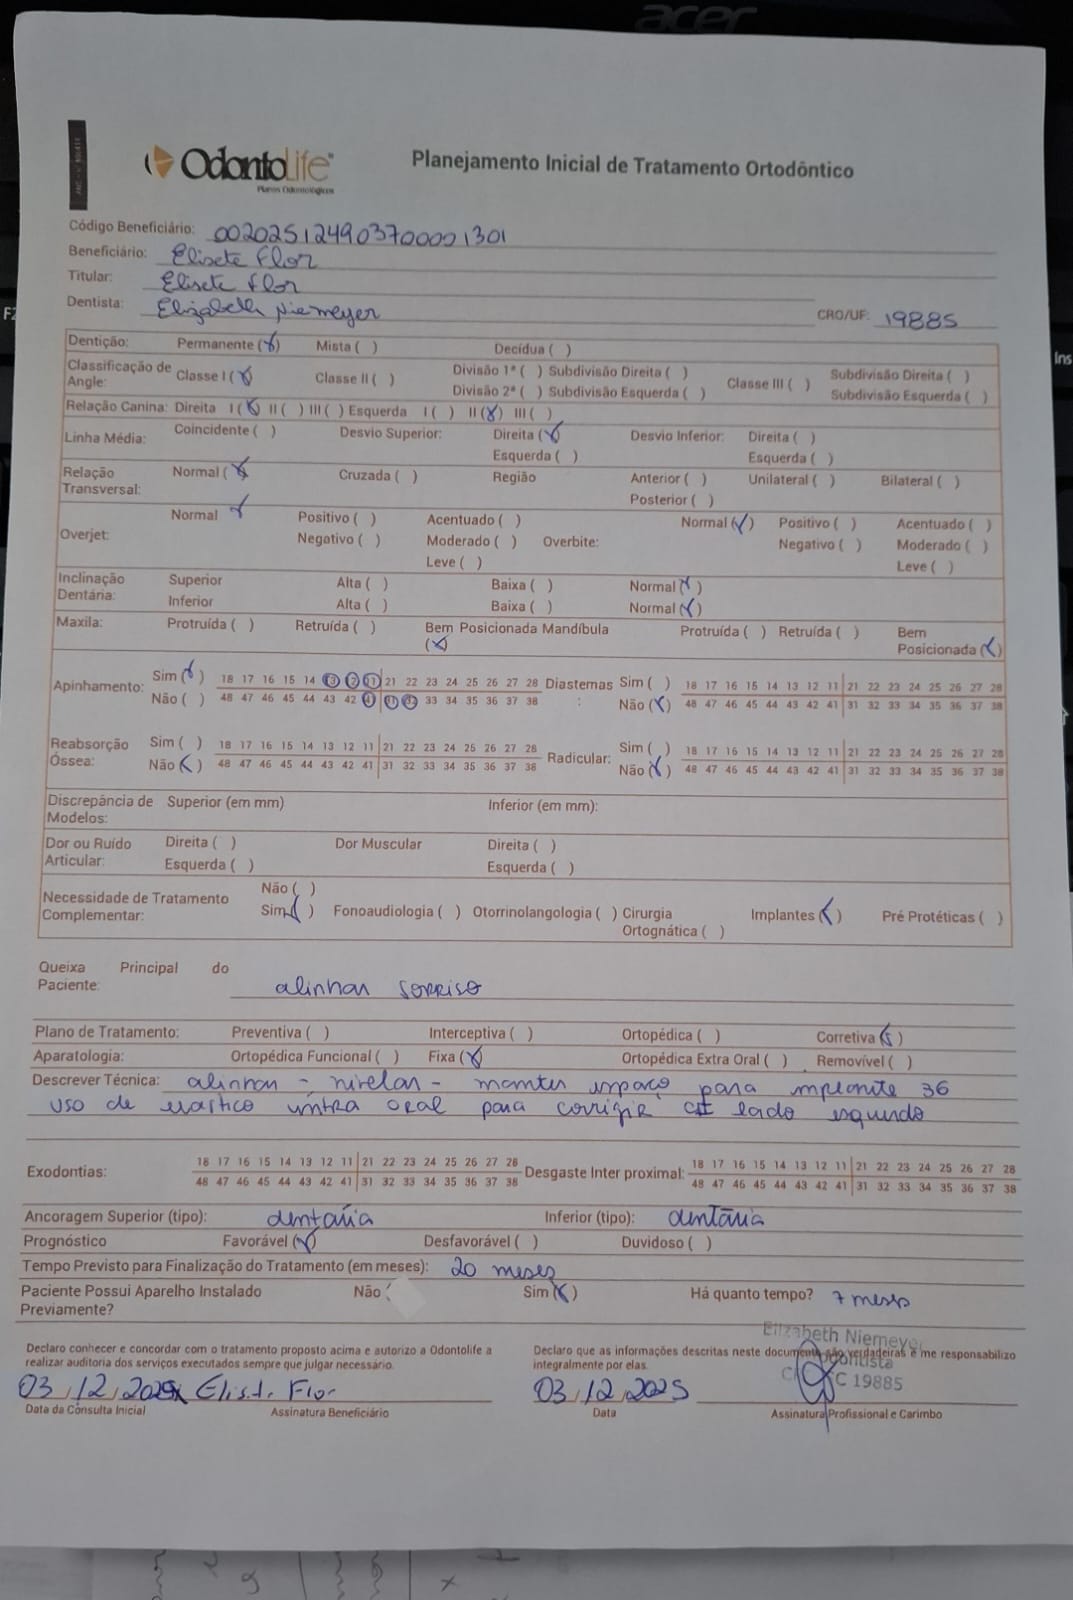 acer
OdontoLife
Planos Odontológicos
Planejamento Inicial de Tratamento Ortodôntico
Código Beneficiário: 00202512490370001301
Beneficiário: Elisete Flor
Titular: Elisete Flor
Dentista: Elizabeth Niemeyer CRO/UF: 19885
Dentição: Permanente (x) Mista ( ) Decídua ( )
Classificação de Angle: Classe I (x) Classe II ( ) Divisão 1ª ( ) Subdivisão Direita ( ) Classe III ( ) Subdivisão Direita ( )
Divisão 2ª ( ) Subdivisão Esquerda ( ) Subdivisão Esquerda ( )
Relação Canina: Direita I (x) II ( ) III ( ) Esquerda I ( ) II (x) III ( )
Linha Média: Coincidente ( ) Desvio Superior: Direita (x) Desvio Inferior: Direita ( )
Esquerda ( ) Esquerda ( )
Relação Transversal: Normal (x) Cruzada ( ) Região Anterior ( ) Unilateral ( ) Bilateral ( )
Posterior ( )
Overjet: Normal x Positivo ( ) Acentuado ( ) Normal (x) Positivo ( ) Acentuado ( )
Negativo ( ) Moderado ( ) Overbite: Negativo ( ) Moderado ( )
Leve ( ) Leve ( )
Inclinação Dentária: Superior Alta ( ) Baixa ( ) Normal (x)
Inferior Alta ( ) Baixa ( ) Normal (x)
Maxila: Protruída ( ) Retruída ( ) Bem Posicionada (x) Mandíbula Protruída ( ) Retruída ( ) Bem Posicionada (x)
Apinhamento: Sim (x) 18 17 16 15 14 13 12 11 21 22 23 24 25 26 27 28 Diastemas: Sim ( ) 18 17 16 15 14 13 12 11 21 22 23 24 25 26 27 28
Não ( ) 48 47 46 45 44 43 42 41 31 32 33 34 35 36 37 38 Não (x) 48 47 46 45 44 43 42 41 31 32 33 34 35 36 37 38
Reabsorção Óssea: Sim ( ) 18 17 16 15 14 13 12 11 21 22 23 24 25 26 27 28 Radicular: Sim ( ) 18 17 16 15 14 13 12 11 21 22 23 24 25 26 27 28
Não (x) 48 47 46 45 44 43 42 41 31 32 33 34 35 36 37 38 Não (x) 48 47 46 45 44 43 42 41 31 32 33 34 35 36 37 38
Discrepância de Modelos: Superior (em mm) Inferior (em mm):
Dor ou Ruído Articular: Direita ( ) Dor Muscular Direita ( )
Esquerda ( ) Esquerda ( )
Necessidade de Tratamento Complementar: Não ( )
Sim (x) Fonoaudiologia ( ) Otorrinolangologia ( ) Cirurgia Ortognática ( ) Implantes (x) Pré Protéticas ( )
Queixa Principal do Paciente: alinhar sorriso
Plano de Tratamento: Preventiva ( ) Interceptiva ( ) Ortopédica ( ) Corretiva (x)
Aparatologia: Ortopédica Funcional ( ) Fixa (x) Ortopédica Extra Oral ( ) Removível ( )
Descrever Técnica: alinhar - nivelar - manter espaço para implante 36
uso de elastico intra oral para corrigir lado esquerdo
Exodontias: 18 17 16 15 14 13 12 11 21 22 23 24 25 26 27 28 Desgaste Inter proximal: 18 17 16 15 14 13 12 11 21 22 23 24 25 26 27 28
48 47 46 45 44 43 42 41 31 32 33 34 35 36 37 38 48 47 46 45 44 43 42 41 31 32 33 34 35 36 37 38
Ancoragem Superior (tipo): dentária Inferior (tipo): dentária
Prognóstico Favorável (x) Desfavorável ( ) Duvidoso ( )
Tempo Previsto para Finalização do Tratamento (em meses): 20 meses
Paciente Possui Aparelho Instalado Previamente? Não ( Sim (x) Há quanto tempo? 7 meses
Declaro conhecer e concordar com o tratamento proposto acima e autorizo a Odontolife a realizar auditoria dos serviços executados sempre que julgar necessário.
Declaro que as informações descritas neste documento são verdadeiras e me responsabilizo integralmente por elas.
Elizabeth Niemeyer
C 19885
03/12/2025 x Elisete Flor 03/12/2025
Data da Consulta Inicial Assinatura Beneficiário Data Assinatura Profissional e Carimbo